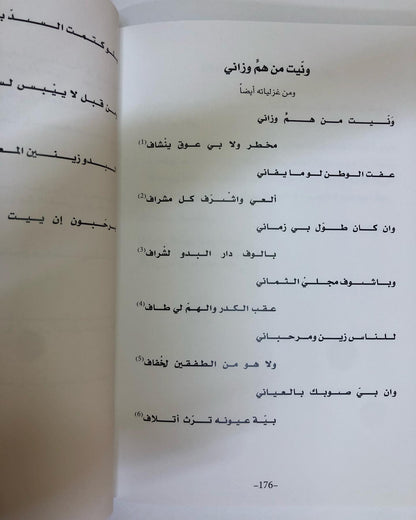 ونّيت من همٌّ وزاني
ومن غزلياته أيضاً
ونّيت من همٌّ وزاني
مخطر ولا بي عوق ينشاف(1)
عفت الوطن لو ما يفاني
ألعي واشرف كل مشراف(2)
وان كان طوّل بي زماني
بالوف دار البدو لشراف(3)
وباشوف مجليّ الثماني
عقب الكدر والهمّ لي طاف(4)
للناس زين ومرحباني
ولا هو من الطفقين لخفاف(5)
وان بيّ صوبك بالعياني
بيّة عيونه ترث أتلاف(6)
-176-
كتمت
ن قبل لا ييبس
لبدو زينين
مرحبون إن ييت